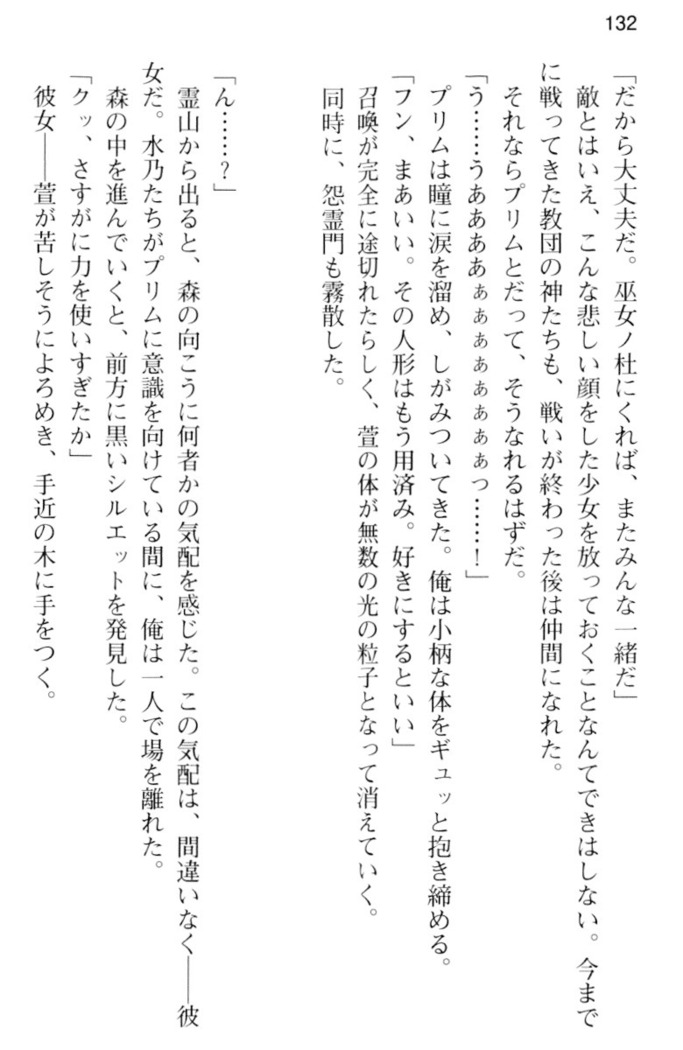 132
「だから大丈夫だ。巫女ノ杜にくれば、またみんな一緒だ」
敵とはいえ、こんな悲しい顔をした少女を放っておくことなんてできはしない。今まで
に戦ってきた教団の神たちも、戦いが終わった後は仲間になれた。
それならプリムとだって、そうなれるはずだ。
「う……うああああぁぁぁぁぁぁぁぁっ……！」
プリムは瞳に涙を溜め、しがみついてきた。俺は小柄な体をギュッと抱き締める。
「フン、まあいい。その人形はもう用済み。好きにするといい」
召喚が完全に途切れたらしく、萱の体が無数の光の粒子となって消えていく。
同時に、怨霊門も霧散した。
「ん……？」
霊山から出ると、森の向こうに何者かの気配を感じた。この気配は、間違いなく――彼
女だ。水乃たちがプリムに意識を向けている間に、俺は一人で場を離れた。
森の中を進んでいくと、前方に黒いシルエットを発見した。
「クッ、さすがに力を使いすぎたか」
彼女――萱が苦しそうによろめき、手近の木に手をつく。